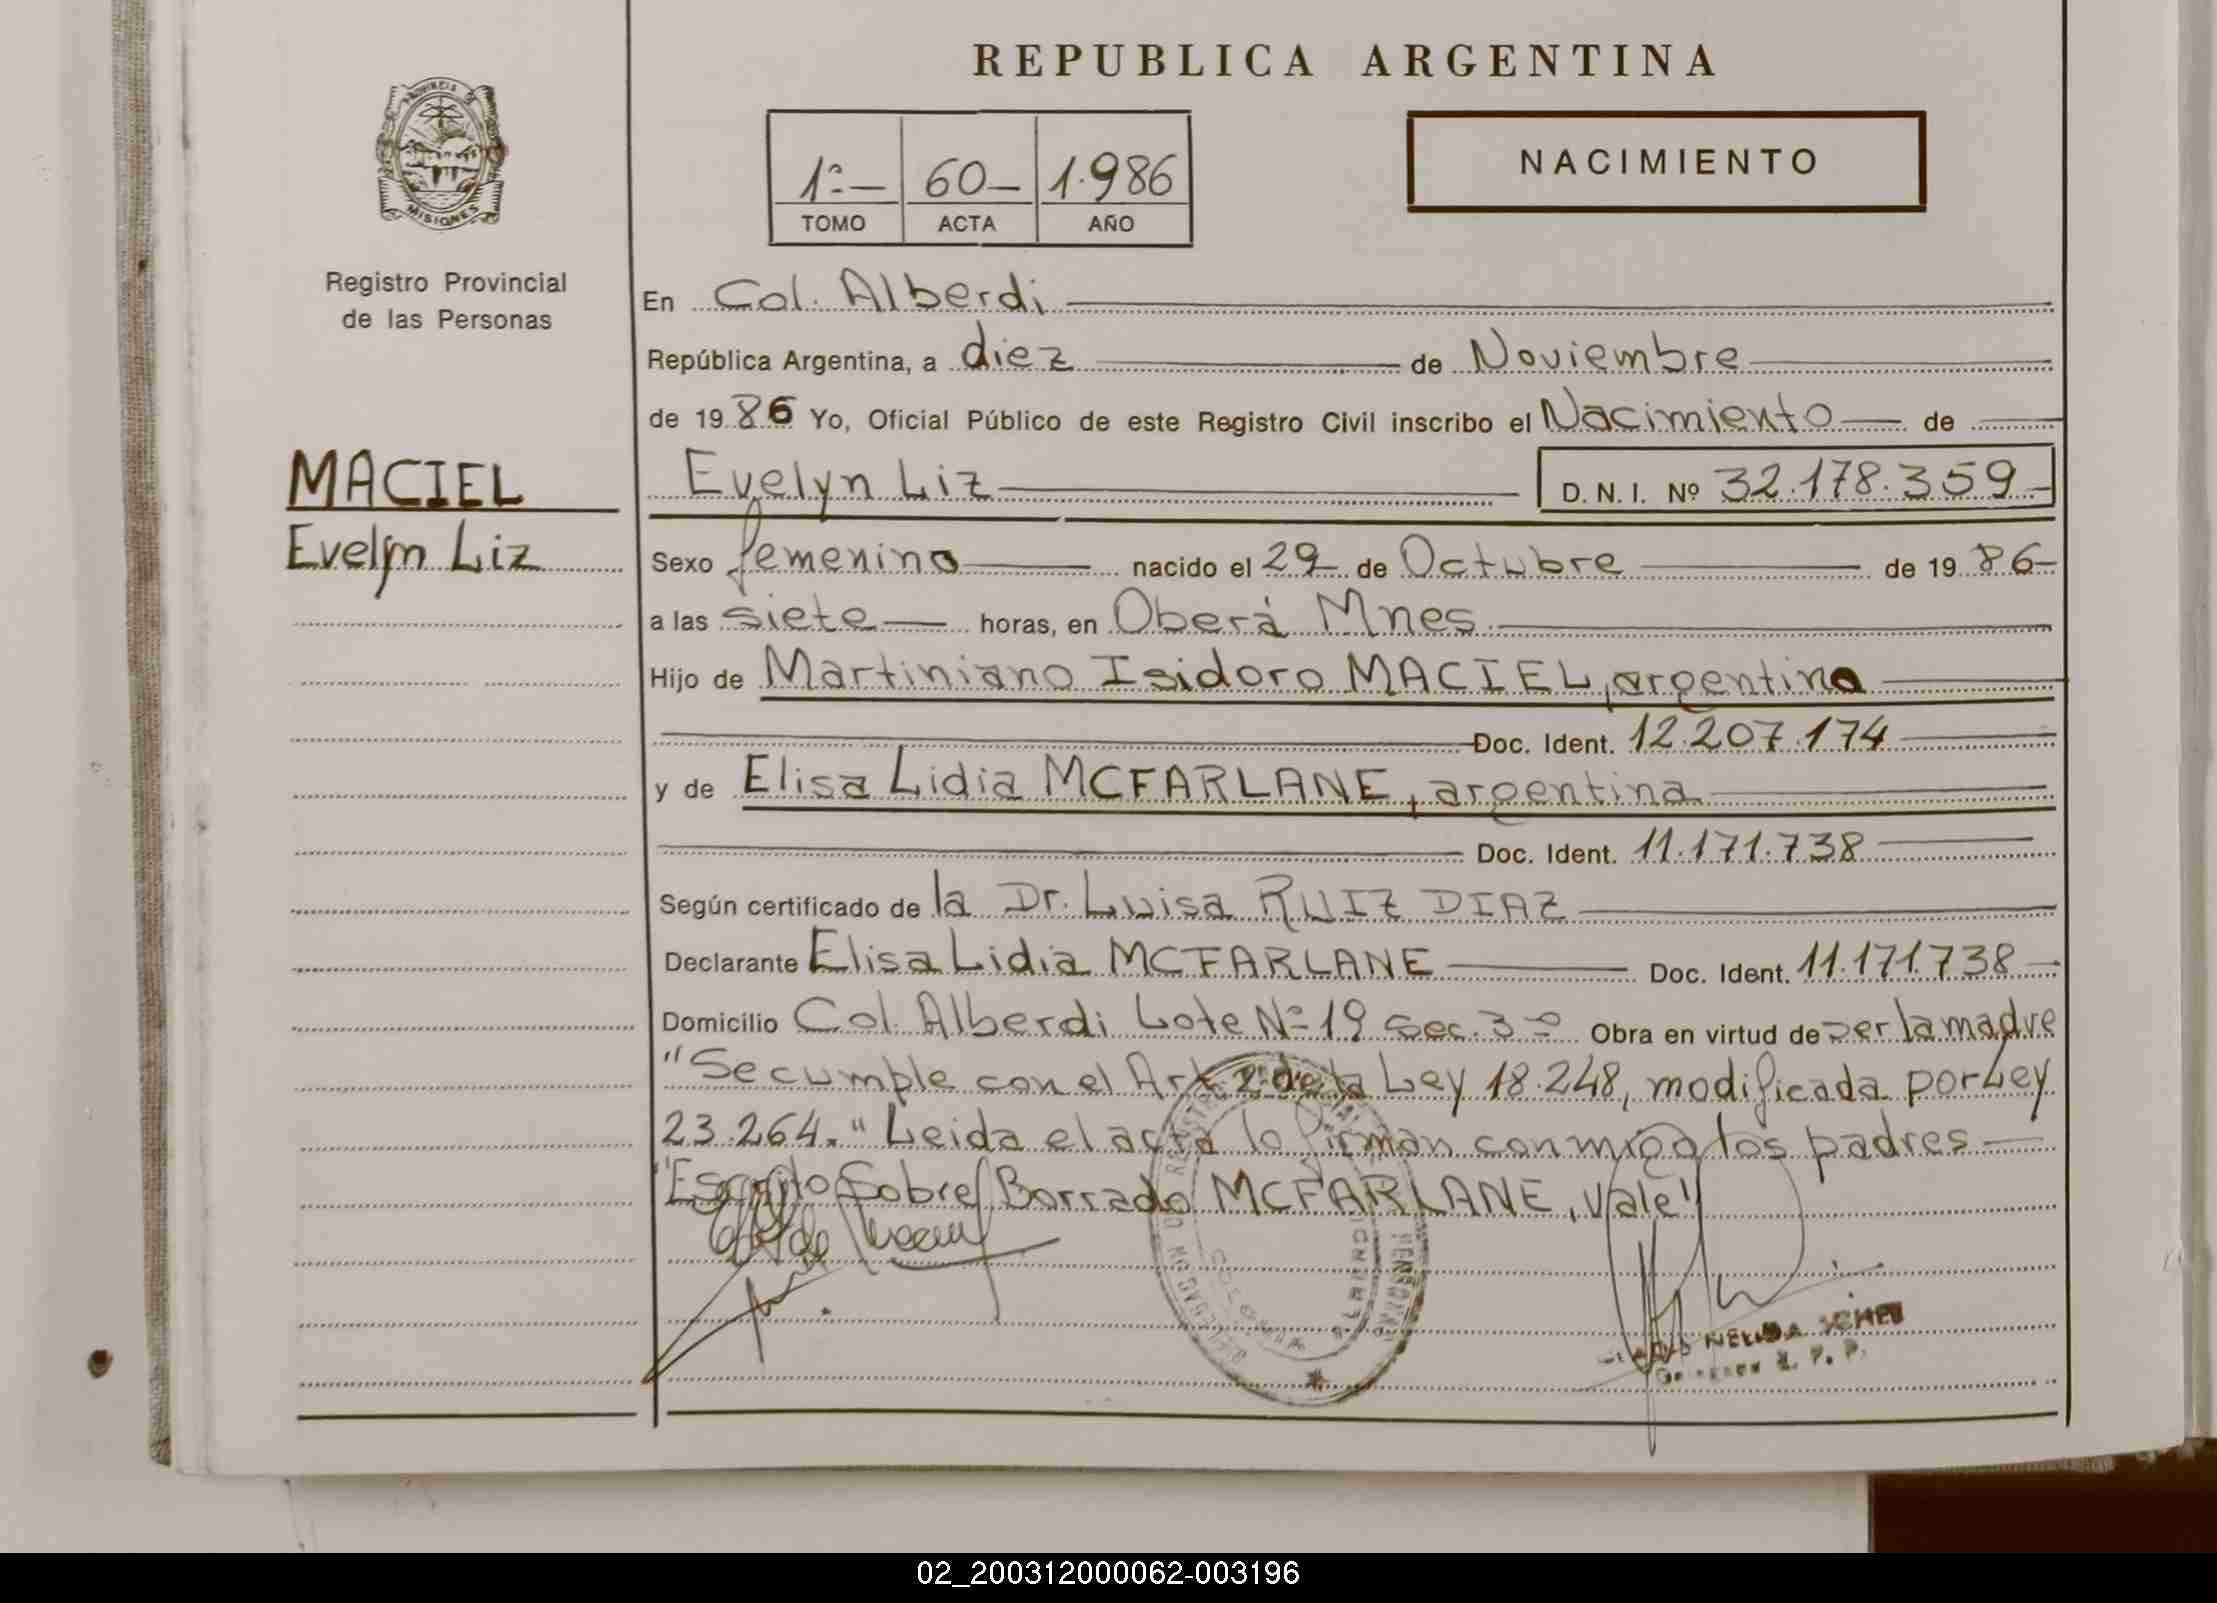 REPUBLICA ARGENTINA
PROVINCIA DE
MISIONES
Registro Provincial
de las Personas
1º- 60- 1.986
TOMO ACTA AÑO
NACIMIENTO
MACIEL
Evelyn Liz
En Col. Alberdi
República Argentina, a diez de Noviembre
de 1986 Yo, Oficial Público de este Registro Civil inscribo el Nacimiento de
Evelyn Liz D. N. I. Nº 32.178.359
Sexo femenino nacido el 29 de Octubre de 1986
a las siete horas, en Oberá Mnes.
Hijo de Martiniano Isidoro MACIEL, argentino
Doc. Ident. 12.207.174
y de Elisa Lidia MCFARLANE, argentina
Doc. Ident. 11.171.738
Según certificado de la Dr. Luisa RUIZ DIAZ
Declarante Elisa Lidia MCFARLANE Doc. Ident. 11.171.738
Domicilio Col. Alberdi Lote Nº 19 sec. 3º Obra en virtud de ser la madre
"Se cumple con el Art 2º de la Ley 18.248, modificada por Ley
23.264." Leida el acta lo firman conmigo los padres
"Escrito Sobre Borrado MCFARLANE, Vale"
COLONIA ALBERDI
NELIDA
02_200312000062-003196